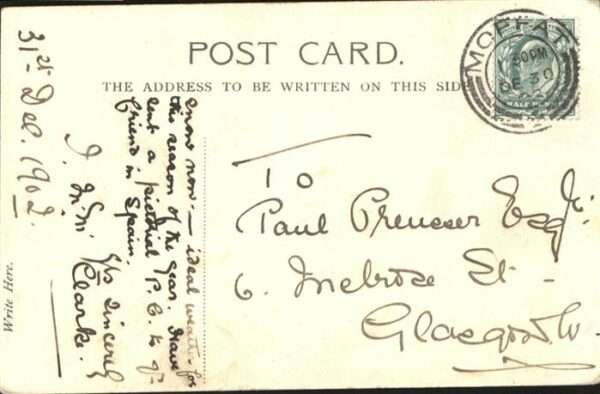 POST CARD.
THE ADDRESS TO BE WRITTEN ON THIS SIDE
MOFFAT
30PM
DE 30
HALF PENNY
To
Paul Preusser Esq Jr.
6. Melrose St -
Glasgow W.
snow now. — ideal weath. for
this season of the year. Have
sent a pictorial P.C. to yr
friend in Spain.
Yrs sincerely
J. M. M. Clark.
31st Dec. 1902.
Write Here.